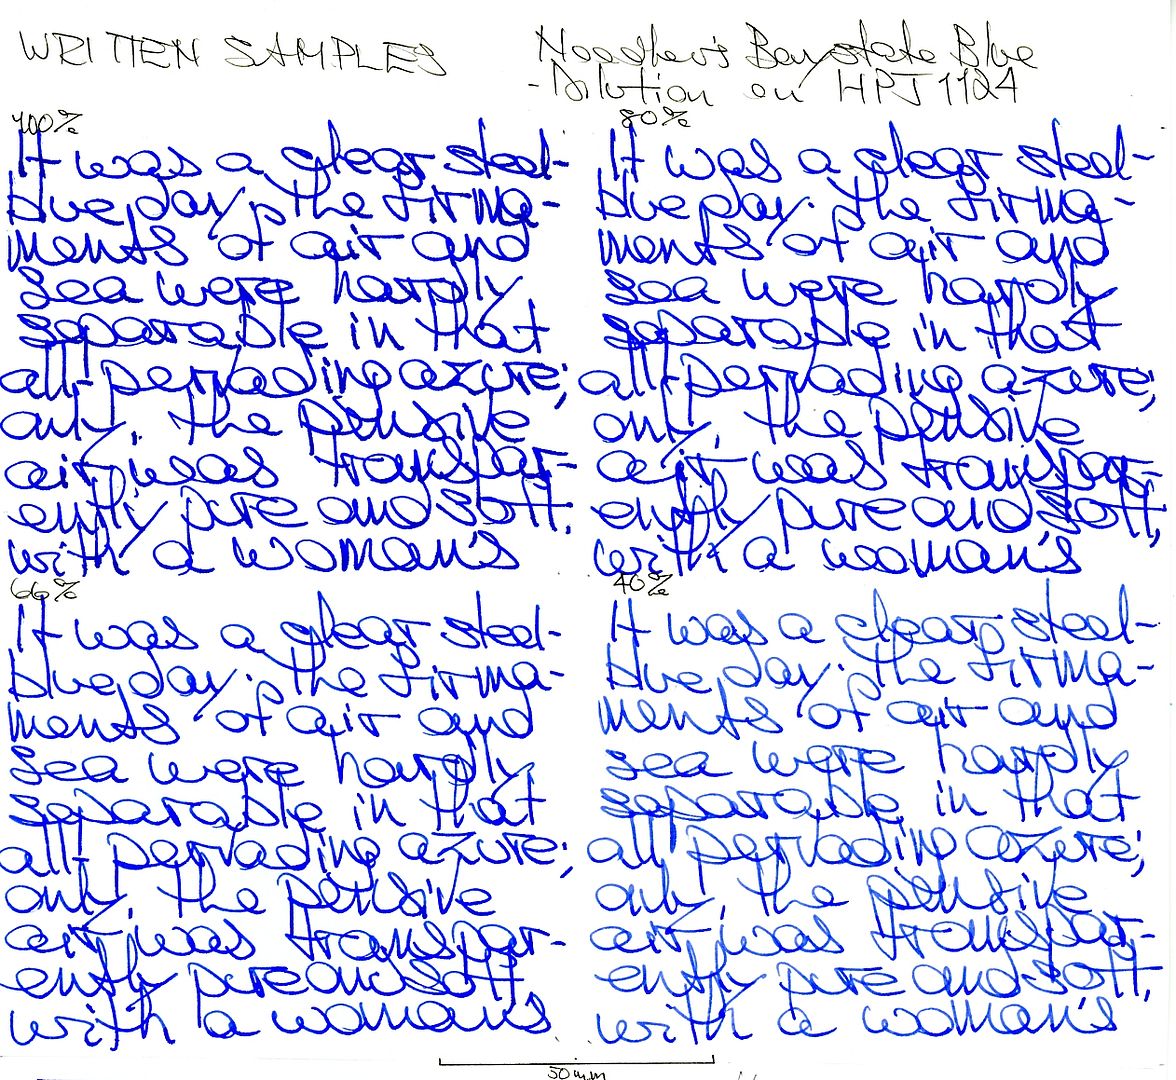 WRITTEN SAMPLES
Noodler's Baystate Blue
-Dilution on HPJ1124
100%
It was a clear steel-
blue day. The firma-
ments of air and
sea were hardly
separable in that
all-pervading azure;
only, the pensive
air was transpar-
ently pure and soft,
with a woman's
80%
It was a clear steel-
blue day. The firma-
ments of air and
sea were hardly
separable in that
all-pervading azure;
only, the pensive
air was transpar-
ently pure and soft,
with a woman's
66%
It was a clear steel-
blue day. The firma-
ments of air and
sea were hardly
separable in that
all-pervading azure;
only, the pensive
air was transpar-
ently pure and soft,
with a woman's
40%
It was a clear steel-
blue day. The firma-
ments of air and
sea were hardly
separable in that
all-pervading azure;
only, the pensive
air was transpar-
ently pure and soft,
with a woman's
50mm